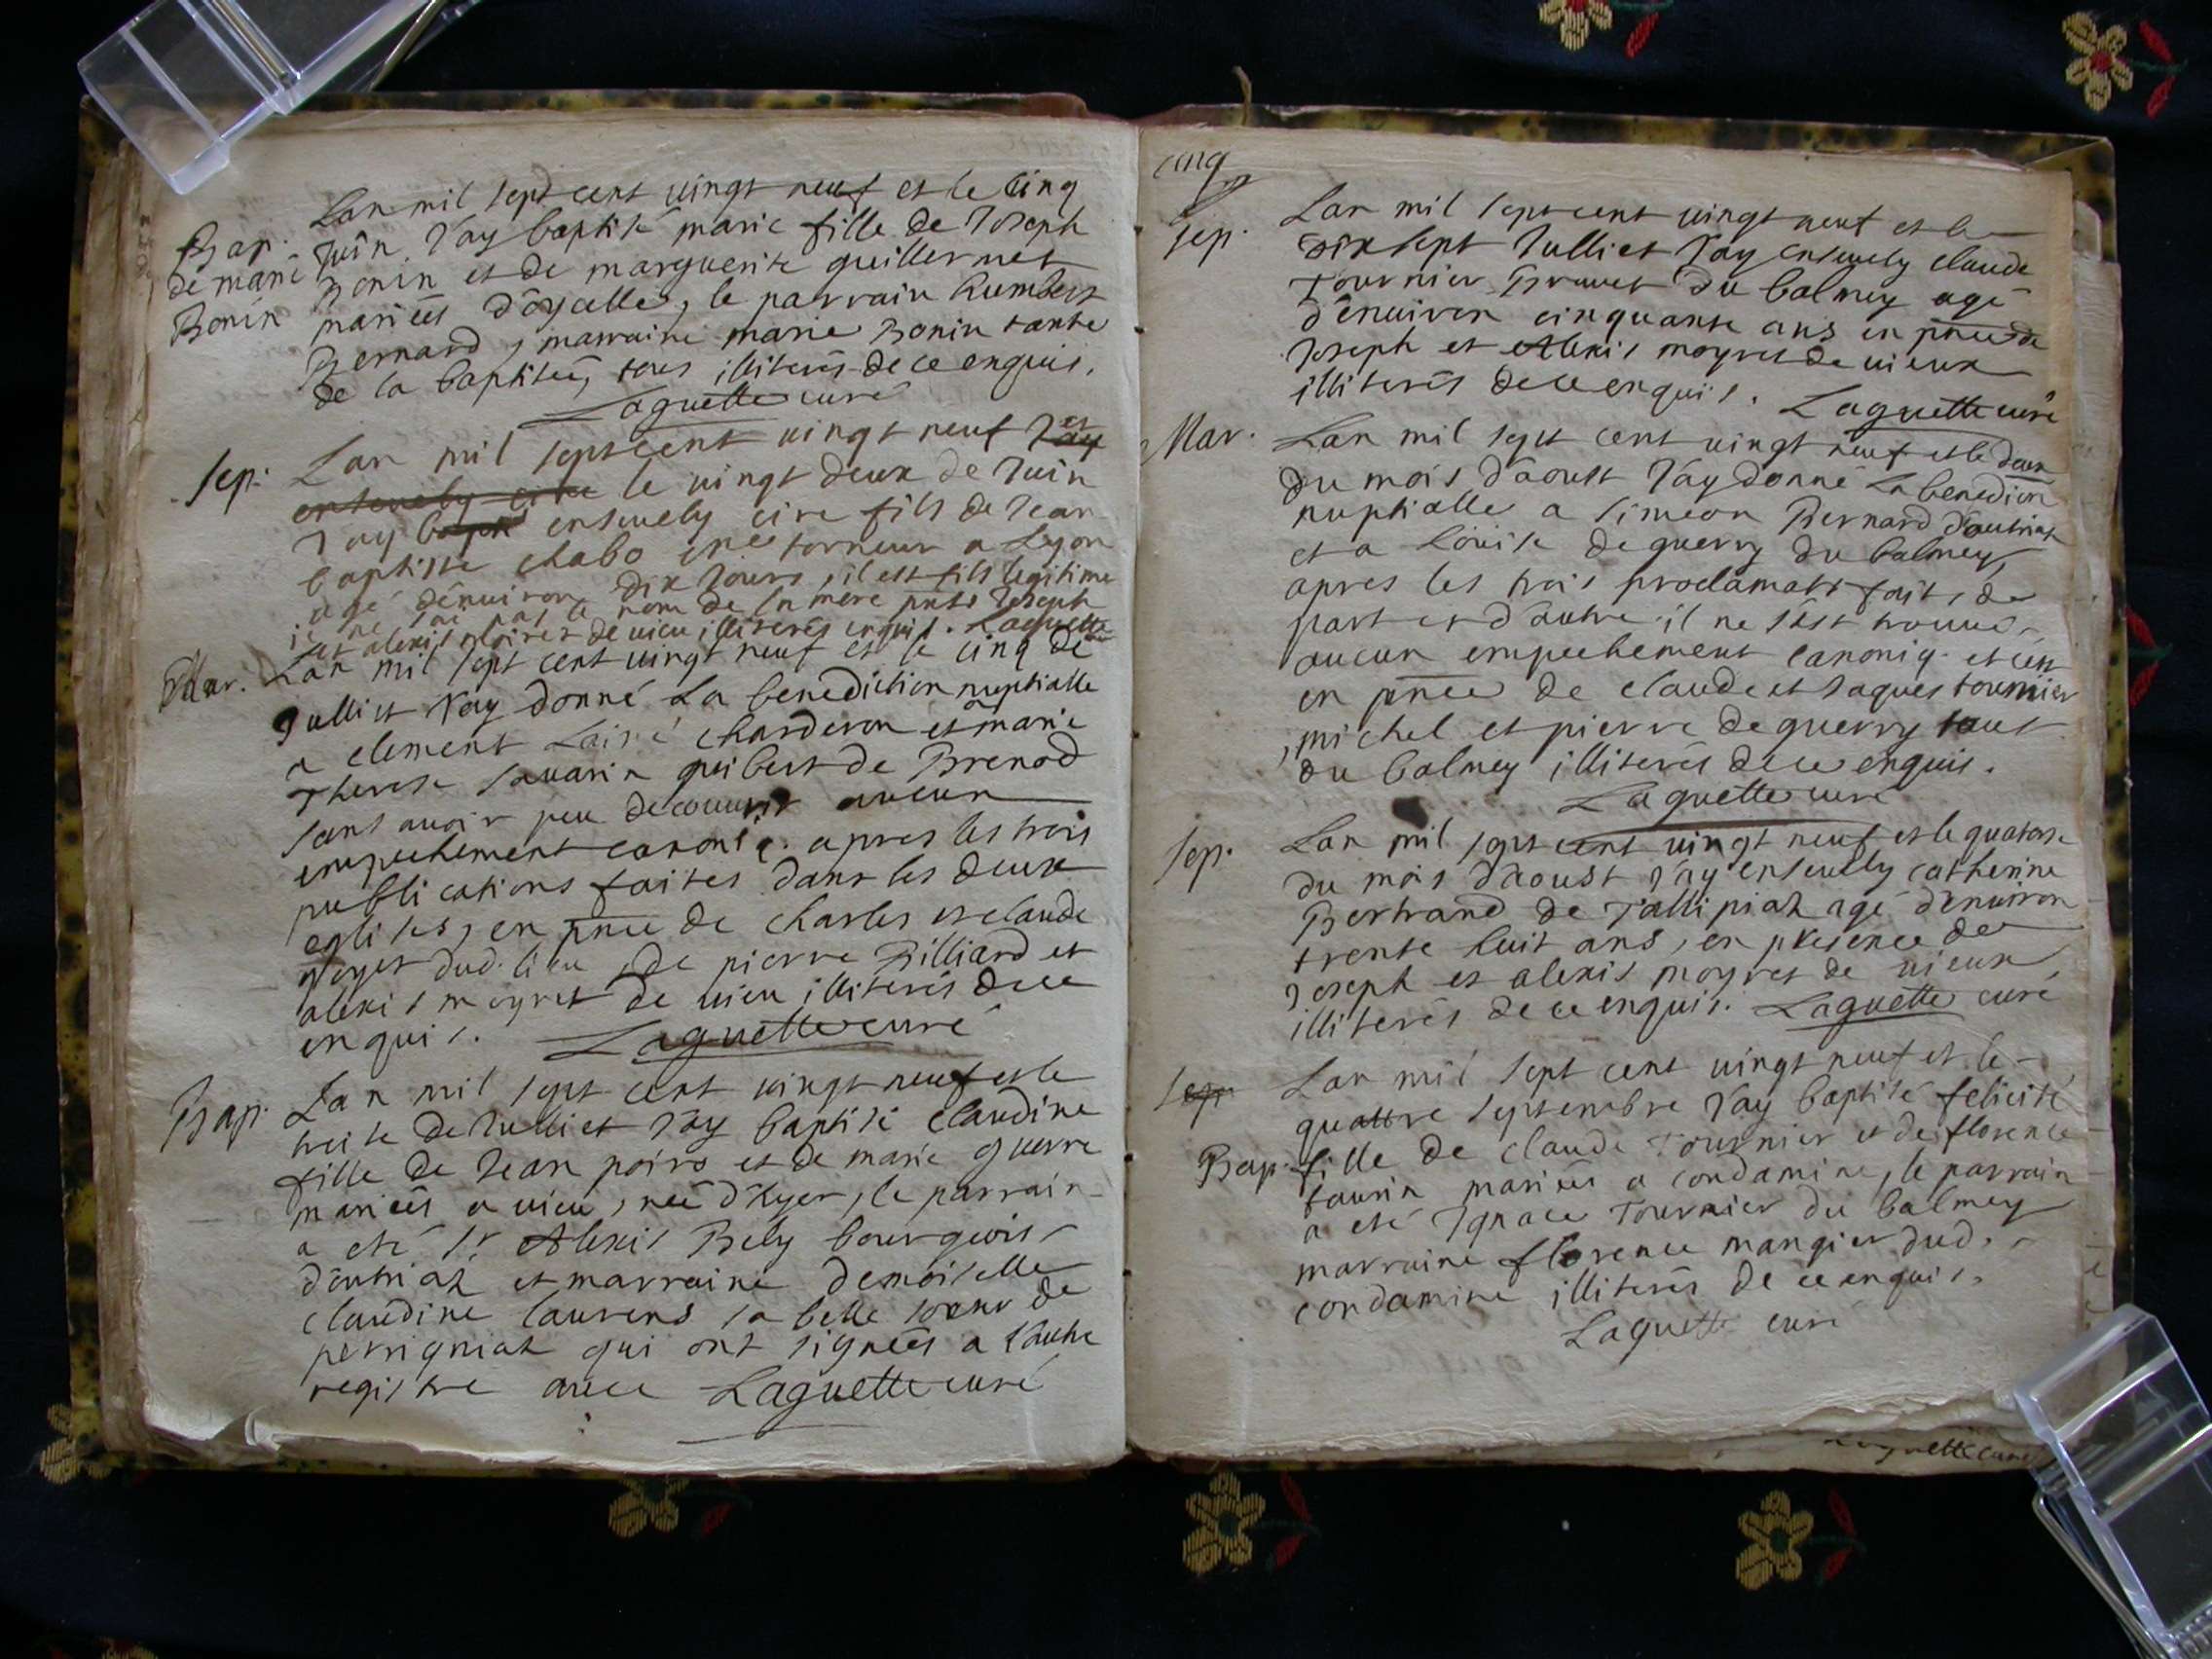 Lan mil sept cent vingt neuf et le cinq
Bap. Juin J'ay baptisé marie fille de Joseph
de marie Bonin et de marguerite guillermet
Bonin mariées d'oycelle, le parrain humbert
Bernard, marraine marie Bonin tante
de la baptiseé, tous illiterés de ce enquis.
Laguette curé
Sep. Lan mil sept cent vingt neuf J'ay et
ensevely le vingt deux de Juin
J'ay bapt ensevely fils de Jean
baptiste chabo torneur a Lyon
agé d'environ dix Jours, il est fils legitime
je ne sai pas le nom de la mere Joseph
et alexis moiret de vieu illiterés enquis. Laguette
Mar. Lan mil sept cent vingt neuf et le cinq de
Julliet J'ay donné La benediction nuptialle
a clement Lairé charderon et marie
Therese Savarin guibert de Brenod
sans avoir peu decouvrir aucun
empechement canoniq. apres les trois
publications faites dans les deux
eglises, en pnce de charles et claude
dud. lieu, de pierre Billiard et
alexis moyret de vieu illiterés de ce
enquis. Laguette curé
Bap. Lan mil sept cent vingt neuf et le
treise de Julliet J'ay baptisé claudine
fille de Jean et de marie guerre
mariées a vieu, neé d'hyer, le parrain
a eté Sr Alexis Bely bourgeois
d'outriaz et marraine demoiselle
claudine laurens sa belle soeur de
petrigniat qui ont signeés a l'autre
registre avec Laguette curé
cinq
Lan mil sept cent vingt neuf et le
Sep. Dix sept Julliet J'ay ensevely claude
Tournier du balmey agé
d'environ cinquante ans en pnce de
Joseph et Alexis moyret de vieux
illiterés de ce enquis. Laguette curé
Mar. Lan mil sept cent vingt neuf et le deux
du mois d'aoust J'ay donné La benedion
nuptialle a Simeon Bernard d'outriat
et a Louise deguerry du balmey,
apres les trois proclamats faits, de
part et d'autre il ne s'est trouvé
aucun empechement canoniq. et cest
en pnce de claude et Jaques tournier
, michel et pierre deguerry tout
du balmey illiterés de ce enquis.
Laguette curé
Sep. Lan mil sept cent vingt neuf et le quatorse
du mois d'aoust J'ay ensevely catherine
Bertrand de Tallipiat agé d'environ
trente huit ans, en presence de
Joseph et alexis moyret de vieux,
illiterés de ce enquis. Laguette curé
Sep. Lan mil sept cent vingt neuf et le
quattre septembre J'ay baptisé felicité
Bap. fille de claude Tournier et de florence
taurin mariées a condamine, le parrain
a eté Ignace Tournier du balmey
marraine florence mangier dud.
condamine illiterés de ce enquis.
Laguette curé
Laguette curé